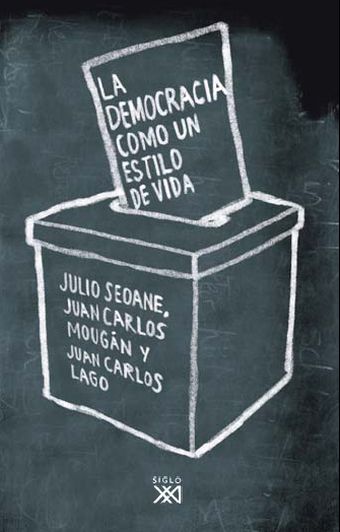 LA
DEMOCRACIA
COMO UN
ESTILO
DE VIDA
JULIO SEOANE,
JUAN CARLOS
MOUGÁN Y
JUAN CARLOS
LAGO
SIGLO
XXI